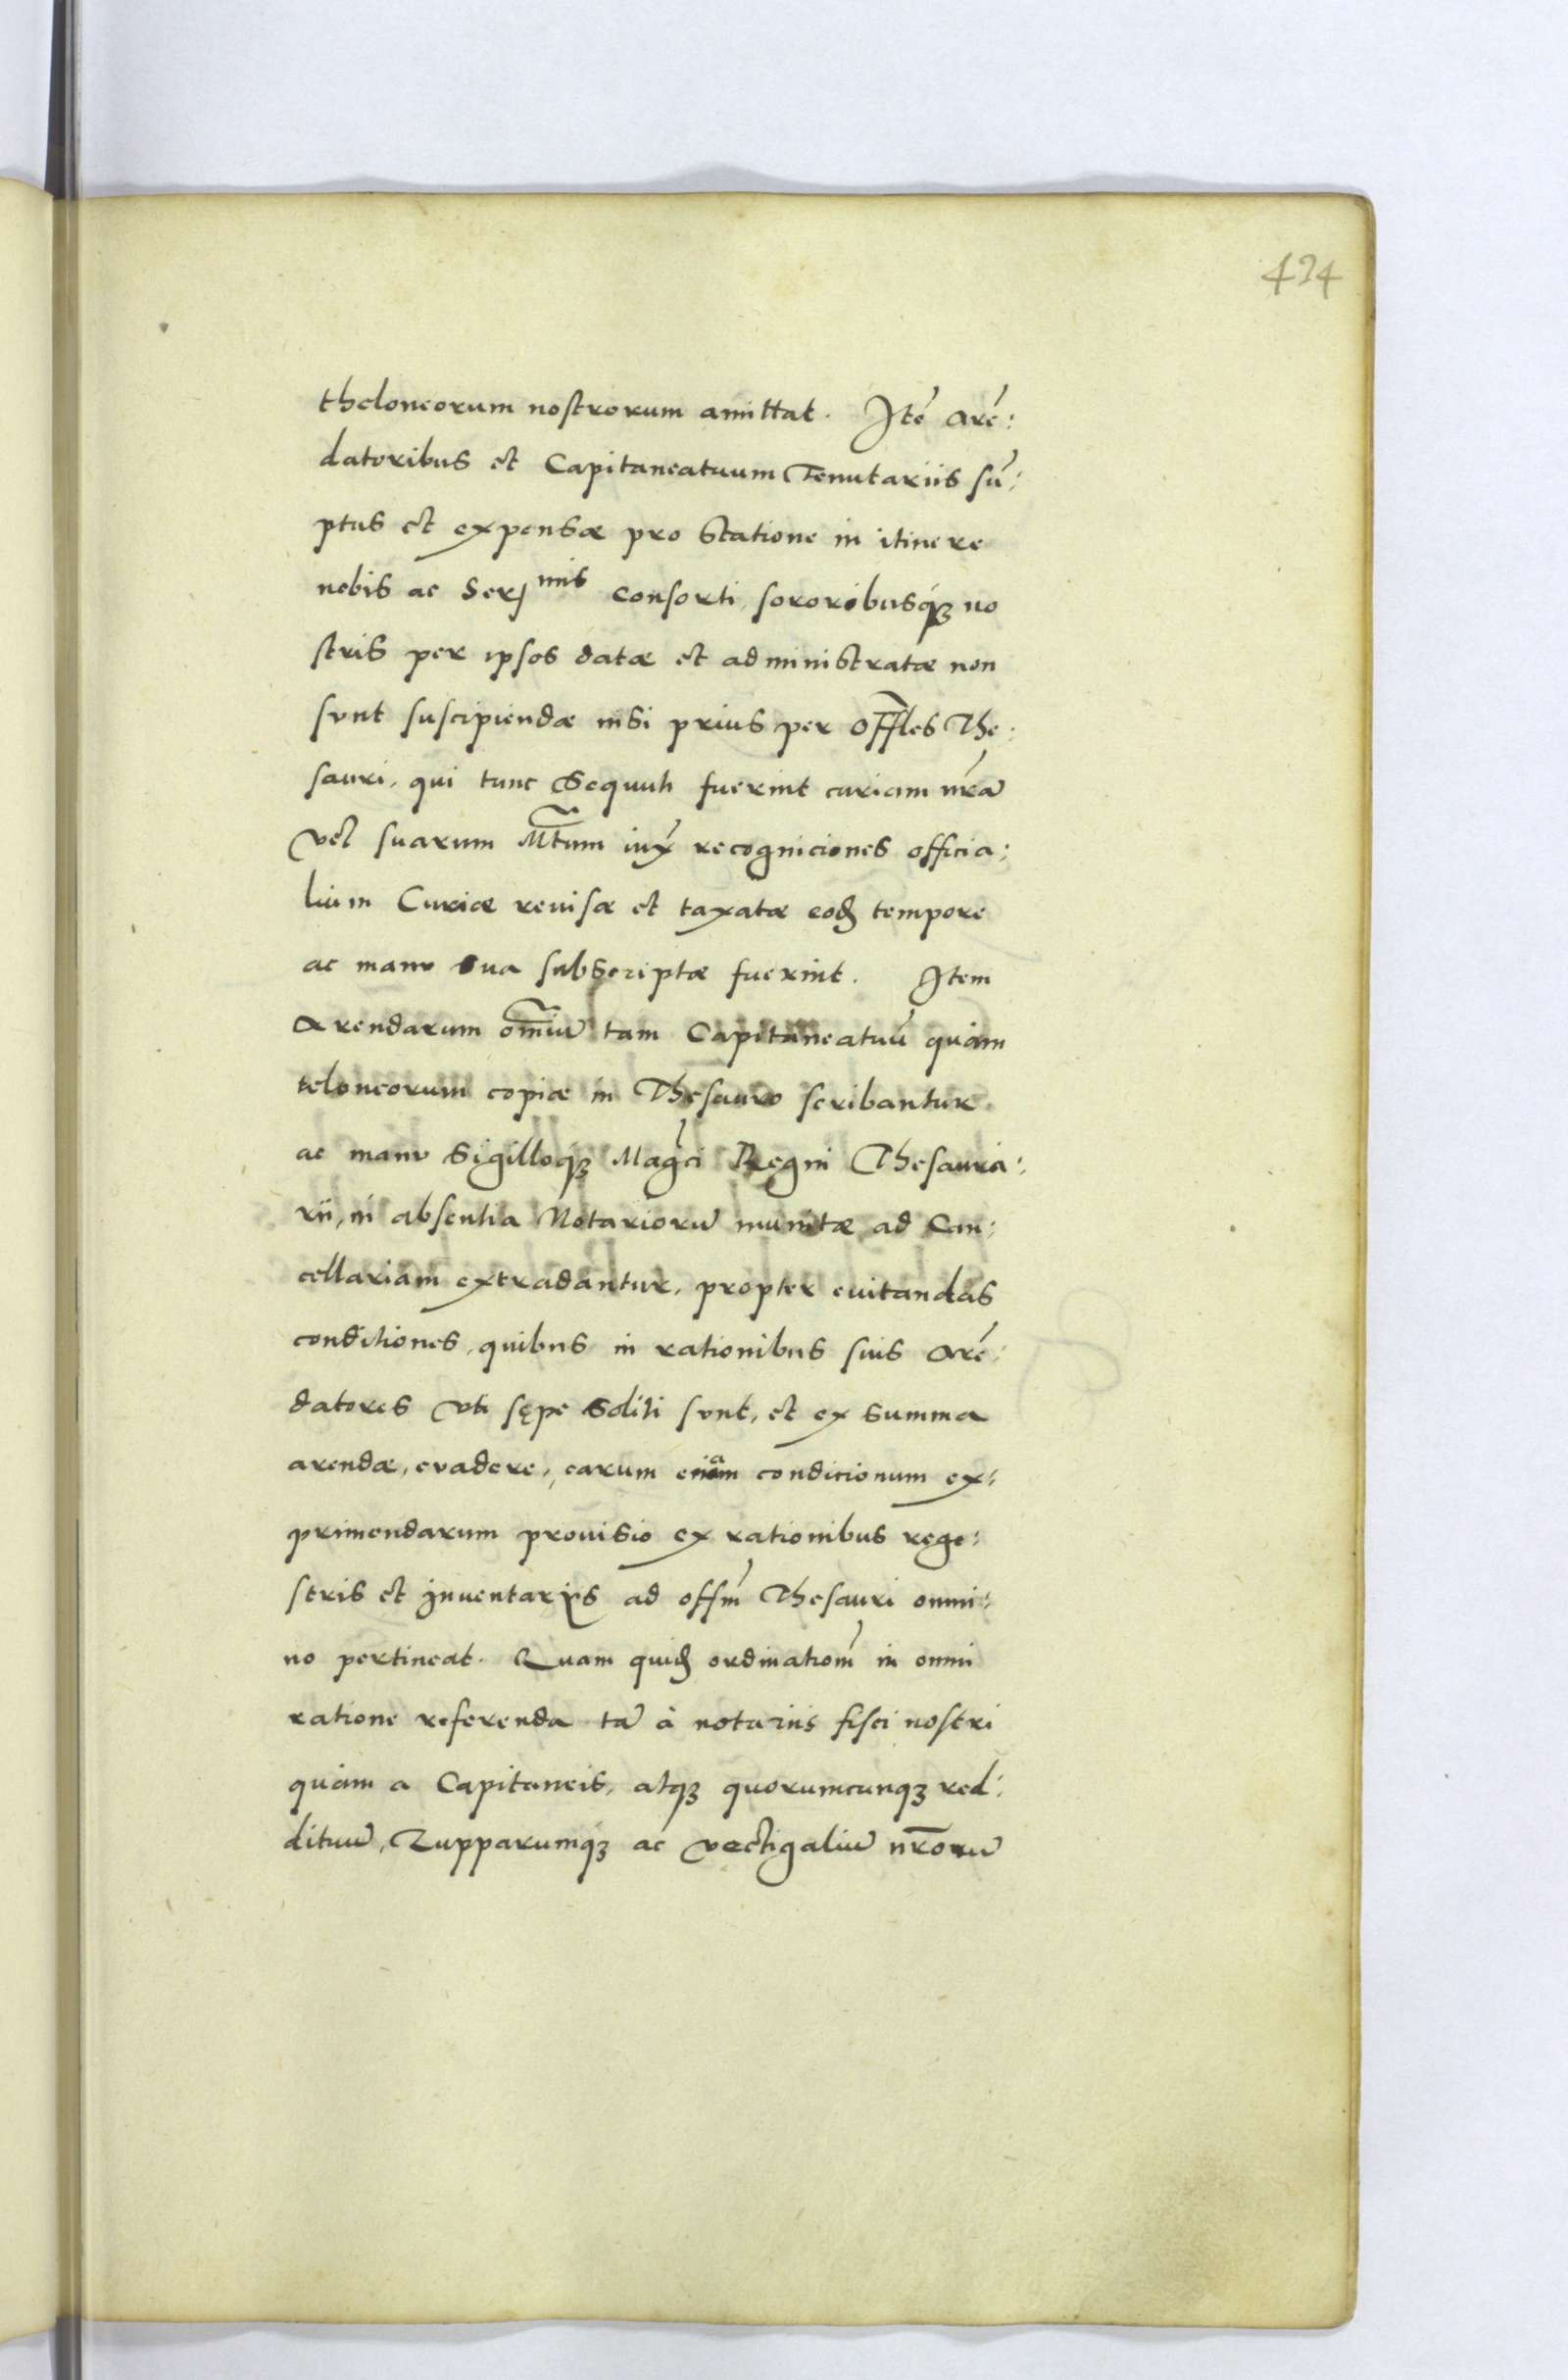 424
theloneorum nostrorum amittat. Itē arē:
datoribus et Capitaneatuum Tenutariis sū:
ptus et expensæ pro statione in itinere
nobis ac Ser mis consorti, sororibusq́ꝫ no
stris per ipsos datæ et administratæ non
sunt suscipiendæ nisi prius per offles The:
sauri, qui tunc Sequuti fuerint curiam nrā
vel suarum Mtum iux recogniciones officia:
lium Curiæ reuisæ et taxatæ eod tempore
ac manv sua subscriptæ fuerint. Item
Arendarum omiū tam Capitaneatuū quàm
teloneorum copiæ in Thesauro scribantur
ac manv Sigilloq́ꝫ Magci Regni Thesaura:
rii, in absentia Notariorū munitæ ad Can:
cellariam extradantur, propter euitandas
conditiones, quibus in rationibus suis Arē:
datores vti sępe soliti sunt, et ex summa
arendæ, evadere, earum etiam condicionum ex:
primendarum prouisio ex rationibus rege:
stris et Inuentarijs ad offm Thesauri omni:
no pertineat. Quam quid ordinatiom in omni
ratione referenda tā à notariis fisci nostri
quàm a Capitaneis, atqꝫ quorumcunqꝫ red:
dituū, Zupparumq́ꝫ ac vectigaliū nrorū